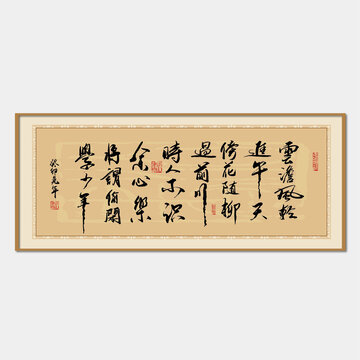 雲澹風輕
近午天
傍花随柳
過前川
時人不识
余心樂
將謂偷閑
學少年
癸卯年